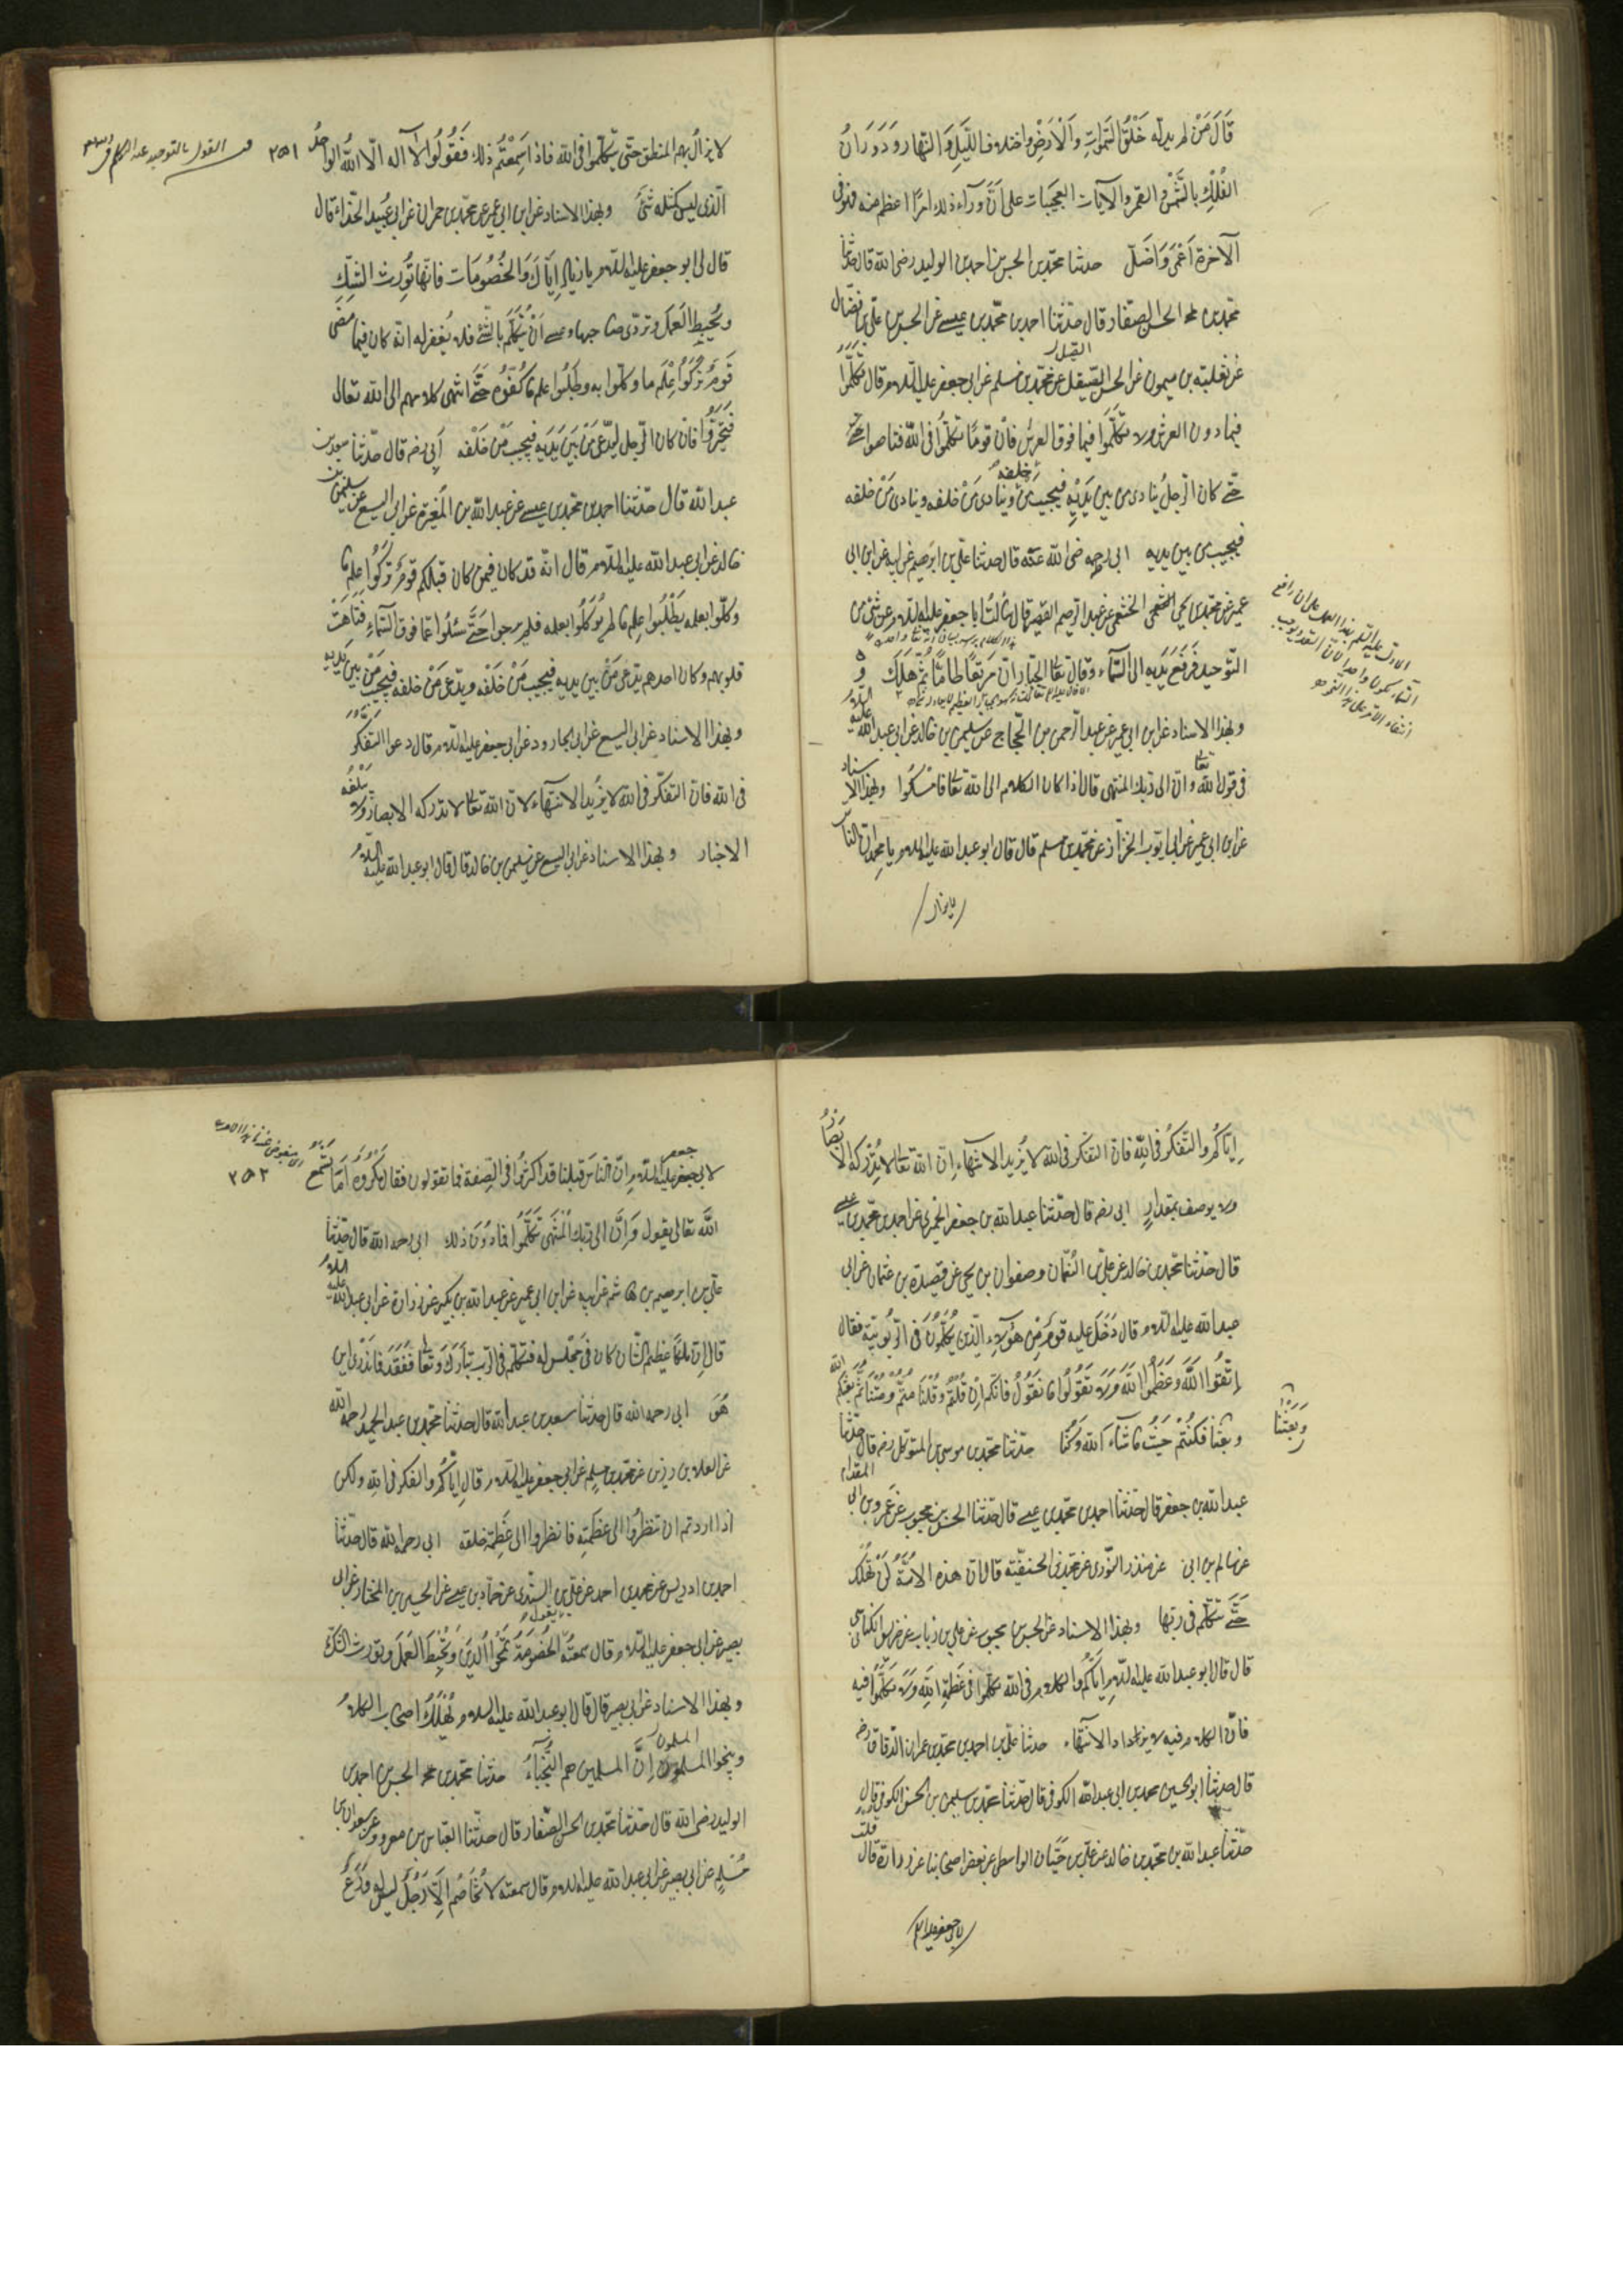 قَالَ مَنْ لم يدلّه خَلْقُ السَّمٰوَاتِ وَالْاَرْضِ واختلاف اللَّيْلِ وَالنّهار وَدَوَرَانُ
الفُلْكِ بالشَّمْسِ والقمر والآيات العجيبَات على اَنَّ وَرآء ذلك امرًا اعظم منه فهو فى
الآخرة اَعْمَى وَاَضَلّ حدثنا محمّد بن الحسن بن احمد بن الوليد رضى الله قال حدّثنا
محمّد بن الحسن الصفّار قال حدّثنا احمد بن محمّد بن عيسى عن الحسن بن على بن فضّال
عن ثعلبة بن ميمون عن الحسن الصّيقل عن محمّد بن مسلم عن ابى جعفر عليه السّلام قال تَكَلَّمُوا
فيما دون العرش ولا تكلّمَوا فيما فوق العرش فانّ قومًا تكلّموا فى اللّٰه فتاهوا حتّى
حتّى كان الرّجلُ يُنادى من بين يَدَيْهِ فيجيب مَنْ خلفه وينادى مَنْ خلفه
فيجيب من بين يديه ابى رحمه رضى الله عنه قال حدثنا على بن ابرهيم عن ابيه عن ابن ابى
عمير عن محمّد بن يحيى الخثعمى عن عبد الرحيم القصير قال سَألتُ ابا جعفر عليه السّلام عن شئ من
التّوحيد فَرَفَعَ يَدَيه الى السَّمآء وقال تعالى الجبّار انّ من تعاطى ما ثَمَّ هَلَكَ
وبهذا الاسناد عن ابن ابى عمير عن عبد الرّحمن بن الحّجاج عن سليمن بن خالد عن ابى عبد الله عليه السلام
فى قول الله تعالى وانّ الى ربّك المنتهى قال اذا كان الكلام الى الله تعالى فامْسِكُوا وبهذا الاسناد
عن ابن ابى عمير عن ابى ايّوب الخزّاز عن محمّد بن مسلم قال قال ابو عبد الله عليه السلام يا محمد انّ النّاس
لا يزال
لا يزالُ بهم المنطق حتّى يتكلّموا فى الله فاذا سَمِعْتُم ذلك فَقُولُوا لآ اله الّا اللّٰهُ الواحدُ
٢٥١
الّذى ليس كمثله شئ وبهذا الاسناد عن ابن ابى عمير عن محمّد بن حمران عن ابى عُبيد الحذاء قال
قال لى ابو جعفر عليه السّلام يا زياد اِيّاكَ وَالخُصُومَات فانّها تُورث الشَّكّ
وتُحبِطُ الْعَمَل وتردّى صاحبها وعسى اَنْ يَتَكَلَّمَ بالشَّئ فلا يُغفر له انّه كان فيما مَضَى
قَومٌ تَرَكُوا عِلْمَ ما وكلّوا به وطَلَبُوا علم ما كُفُوه حَتَّى انتهى كلامهم الى الله تعالى
فَتَحَيَّرُوا فان كان الرّجل ليدعى مَنْ بَيْنِ يَدَيهِ فيجيب مَنْ خَلْفه ابى رضه قال حدّثنا سعد بن
عبد الله قال حدّثنا احمد بن محمّد بن عيسى عن عبد الله بن المغيرة عن ابى اليسع عن سليمن بن
خالد عن ابى عبد الله عليه السلام قال انّه قد كان فيمن كان قبلكم قومٌ تَرَكُوا عِلم ما
وُكّلوا بعلمه يَطلُبُوا علم ما لم يُوكّلُوا بعلمه فلم يبرحوا حَتَّى سُئلُوا عمّا فوق السَّمآءِ فتاهَتْ
قلوبهم وكان احدهم يدعى مَنْ بين يديه فيجيبُ مَنْ خَلْفه ويدعى مَنْ خلفه فيجيبُ مَنْ بين يديه
وبهذا الاسناد عن ابى اليسع عن ابى الجارود عن ابى جعفر عليه السلام قال دعوا التفكّر
فى الله فانّ التفكّر فى الله لا يَزيد الّا تيهًا لانّ الله تعالى لا تدركه الابصار ولا تبلغه
الاخبار وبهذا الاسناد عن ابى اليسع عن سليمن بن خالد قال قال ابو عبد الله عليه السلام
اِيّاكُم والتّفكّر فى اللهِ فانّ التفكّر فى الله لا يَزيد الّا تيهًا اِنّ الله تعالى لا تُدركه الابصَارُ
ولا يوصف بمقدارٍ ابى رضه قال حدّثنا عبد الله بن جعفر الحميرى عن احمد بن محمّد بن عيسى
قال حدّثنا محمّد بن خالد عن على بن النّعمان وصفوان بن يحيى عن فضيل بن عثمان عن ابى
عبد الله عليه السلام قال دَخَل عليه قومٌ مِن هؤلآء الّذين يتكلّمون فى الرّبوبيّة فقال
اِتّقُوا اللَّه وَعَظِّمُوا اللَّه وَلا تَقُولُوا ما لا نَقُولُ فانّكم اِنْ قُلْتُمْ وَقُلْنَا مُتُّمْ وَمُتْنا ثمّ بعثكم الله
وَبَعَثَنَا
وبعثنا فكُنْتُمْ حَيْثُ شآء الله وكُنّا حدّثنا محمّد بن موسى بن المتوكّل رضه قال حدّثنا
عبد الله بن جعفر قال حدّثنا احمد بن محمّد بن عيسى قال حدّثنا الحسن بن محبوب عن عمرو بن ابى المقدام
عن سالم بن ابى عن منذر الثّورى عن محمّد بن الحنفيّة قال انّ هذه الامّة لَنْ تهلك
حَتَّى تتكلّم فى ربّها وبهذا الاسناد عن الحسن بن محبوب عن على بن رئاب عن ضريس الكناسى
قال قال ابو عبد الله عليه السلام اِيّاكم والكلام فى الله تكلّموا فى عَظَمَةِ الله ولا تكلّموا فيه
فانّ الكلام فيه لا يزداد الّا تيهًا حدثنا على بن احمد بن محمّد بن عمران الدّقاق رضه
قال حدثنا ابو الحسين محمد بن ابى عبد الله الكوفى قال حدّثنا محمّد بن سليمن بن الحسن الكوفى قال
حدّثنا عبد الله بن محمّد بن خالد عن على بن حسّان الواسطى عن بعض اصحابنا عن زرارة قال قلت
لابى جعفر عليه السلام
لابى جعفر عليه السلام اِنّ الناس قبلنا قد اكثروا فى الصّفة فما تقولون فقال مكروه اَمَا تَسْمَعُ
٢٥٢
اللَّه تعالى يقول وَاَنَّ الى رَبّك المُنتَهى تَكَلَّمُوا فيما دُونَ ذلك ابى رحمه الله قال حدّثنا
على بن ابرهيم بن هاشم عن ابيه عن ابن ابى عمير عن عبد الله بن بكير عن زرارة عن ابى عبد الله عليه السلام
قال اِنّ ملكًا عظيم الشّان كان فى مجلس له فتكلّم فى الرّبّ تَبَارَكَ وَتعالى ففُقِدَ فما يُدرى اين
هُوَ ابى رحمه الله قال حدثنا سعد بن عبد الله قال حدثنا محمّد بن عبد الحميد رحمه الله
عن العلا بن رزين عن محمّد بن مسلم عن ابى جعفر عليه السلام قال اِيّاكُم والفكر فى الله ولكن
اذا اردتم ان تنظرُوا الى عَظَمتِه فانظروا الى عظمة خلقه ابى رحمه الله قال حدثنا
احمد بن ادريس عن محمد بن احمد عن على بن السّندى عن حمّاد بن عيسى عن الحسين بن المختار عن ابى
بصير عن ابى جعفر عليه السلام قال سمعتُه يقول الخُصُومَةُ تَمْحُوا الدِّينَ وتُحْبِطُ العَمَل وتورث الشّكّ
وبهذا الاسناد عن ابى بصير قال قال ابو عبد الله عليه السلام يُهْلَكُ اصحَابُ الكلام
وينجوا المسلمون اِنّ المسلمين هم النُّجَبآءُ حدثنا محمّد بن الحسن بن احمد بن
الوليد رضى الله قال حدّثنا محمّد بن الحسن الصفّار قال حدثنا العبّاس بن معروف عن سعدان بن
مُسْلِم عن ابى بصير عن ابى عبد الله عليه السلام قال سمعته لا يُخاصم اِلّا رَجُلٌ ليس له وَرَعٌ